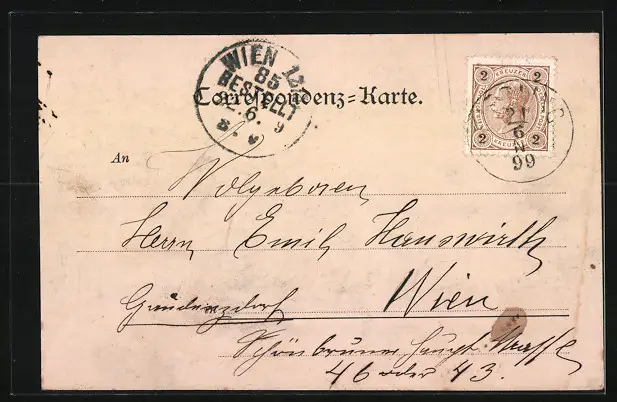 WIEN 12/1
85
BESTELLT
22. 6. 9
8. V
Correspondenz=Karte.
2 KREUZER 2
2 KREUZER 2
21
6
N
99
An
Wolgeboren
Herrn Emil Hauswirth
Gaudenzdorf Wien
Schönbrunner Haupt Strasse
46 oder 43.